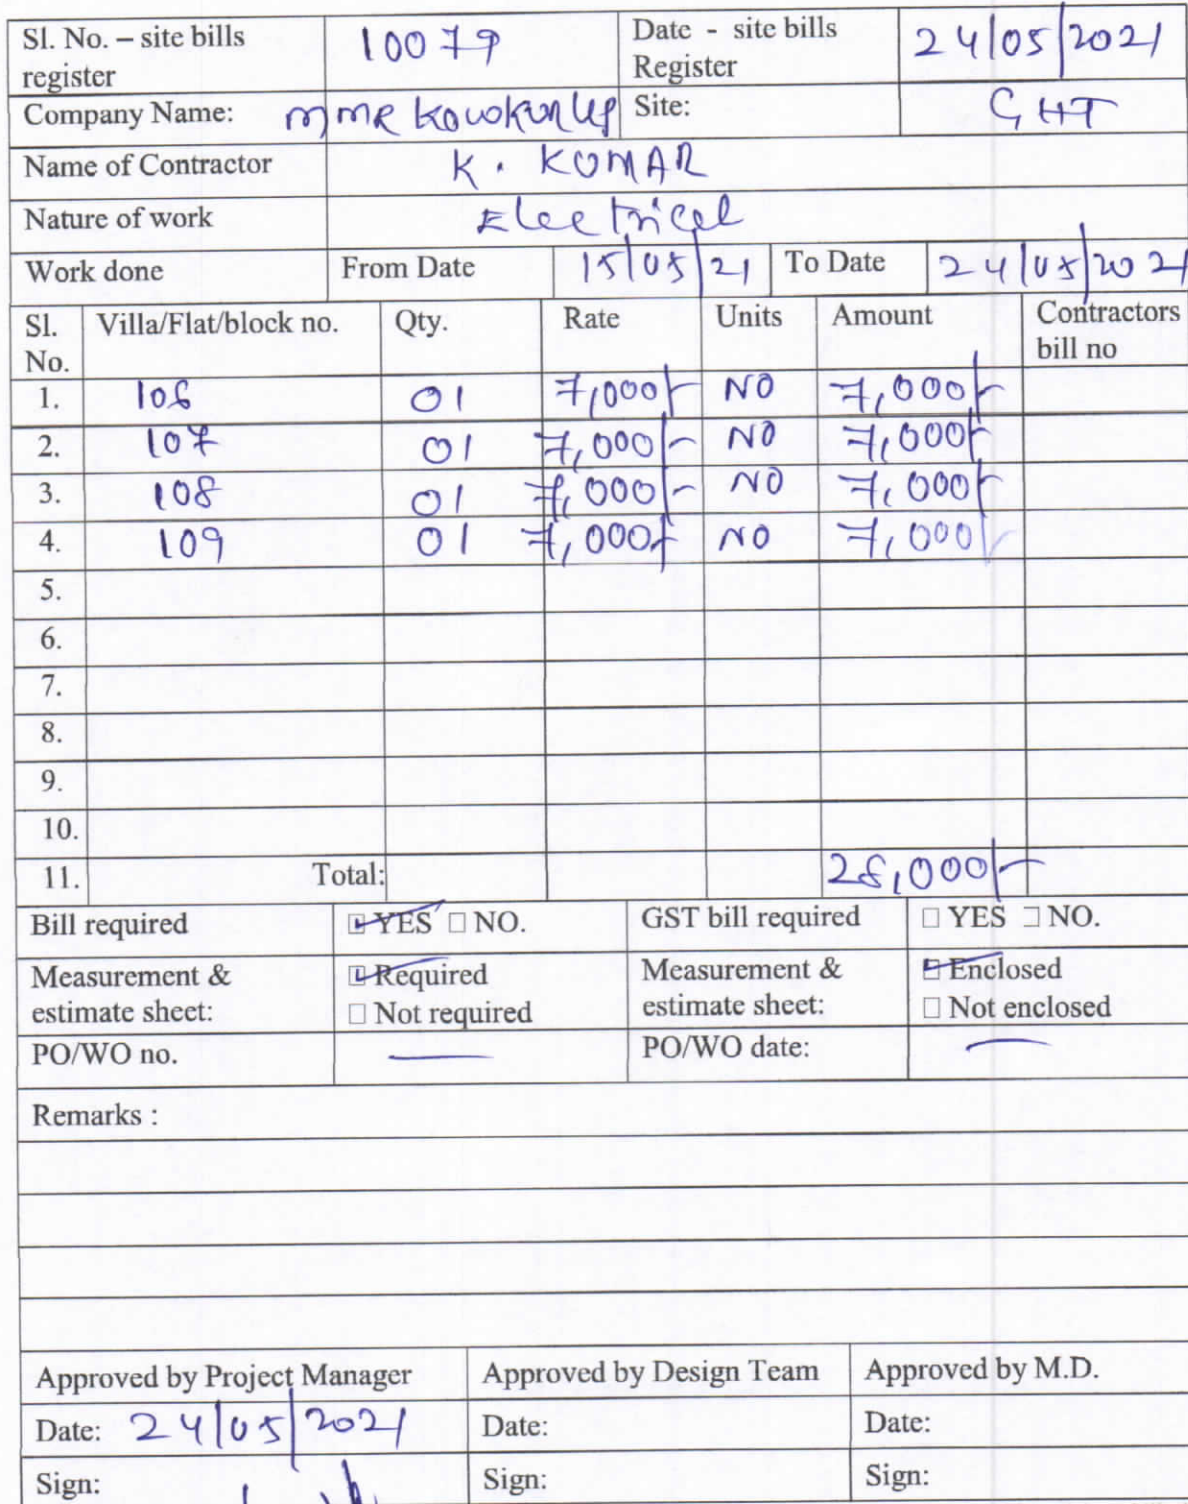 Sl. No. – site bills register 10079 Date - site bills Register 24/05/2021
Company Name: MMR Kowkur LLP Site: GHT
Name of Contractor K. KUMAR
Nature of work Electrical
Work done From Date 15/05/21 To Date 24/05/2021
Sl. No. Villa/Flat/block no. Qty. Rate Units Amount Contractors bill no
1. 106 01 7,000/- NO 7,000/-
2. 107 01 7,000/- NO 7,000/-
3. 108 01 7,000/- NO 7,000/-
4. 109 01 7,000/- NO 7,000/-
5.
6.
7.
8.
9.
10.
11. Total: 28,000/-
Bill required ☑ YES ☐ NO. GST bill required ☐ YES ☐ NO.
Measurement & estimate sheet: ☑ Required ☐ Not required Measurement & estimate sheet: ☑ Enclosed ☐ Not enclosed
PO/WO no. — PO/WO date: —
Remarks :
Approved by Project Manager Approved by Design Team Approved by M.D.
Date: 24/05/2021 Date: Date:
Sign: Sign: Sign: